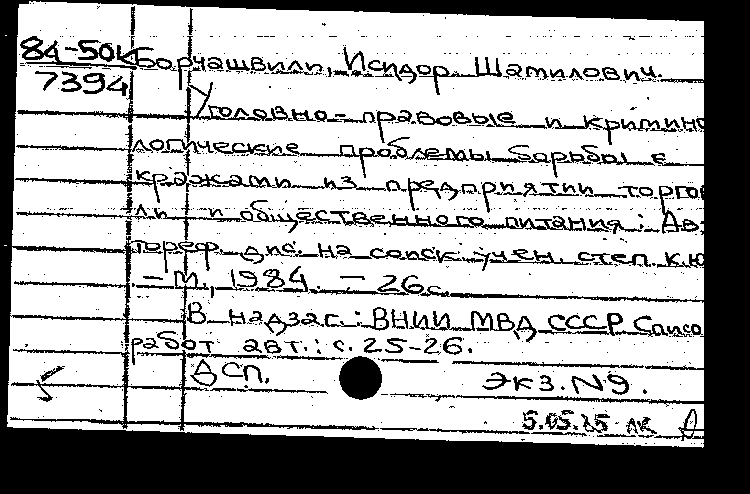 84-50к Борчашвили, Исидор Шамилович.
7394
Уголовно-правовые и кримино
логические проблемы борьбы с
кражами из предприятий торгов
ли и общественного питания: Ав
тореф. дис. на соиск. учен. степ. к.ю
— М., 1984. — 26с.
В надзаг.: ВНИИ МВД СССР Списо
работ авт.: с. 25-26.
ДСП. Экз. N9.
5.05.85 лк